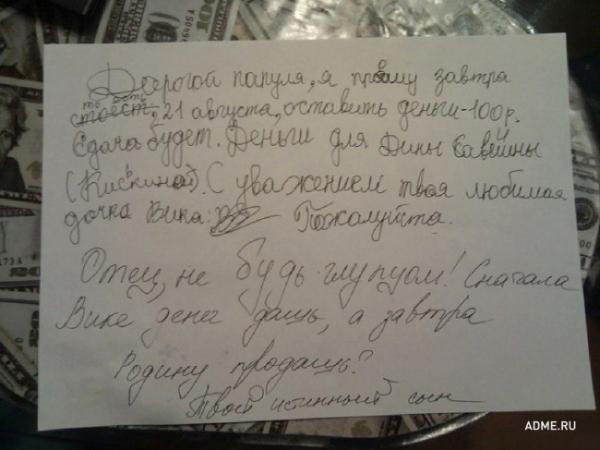 Дорогой папуля, я прошу завтра
то есть
стоест, 21 августа, оставить деньги-100р.
Сдача будет. Деньги для Дины Савельны
(Киськиной). С уважением твоя любимая
дочка Вика. Пожалуйста.
Отец, не будь глупцом! Сначала
Вике денег дашь, а завтра
Родину продашь?
Твой истинный сын
ADME.RU